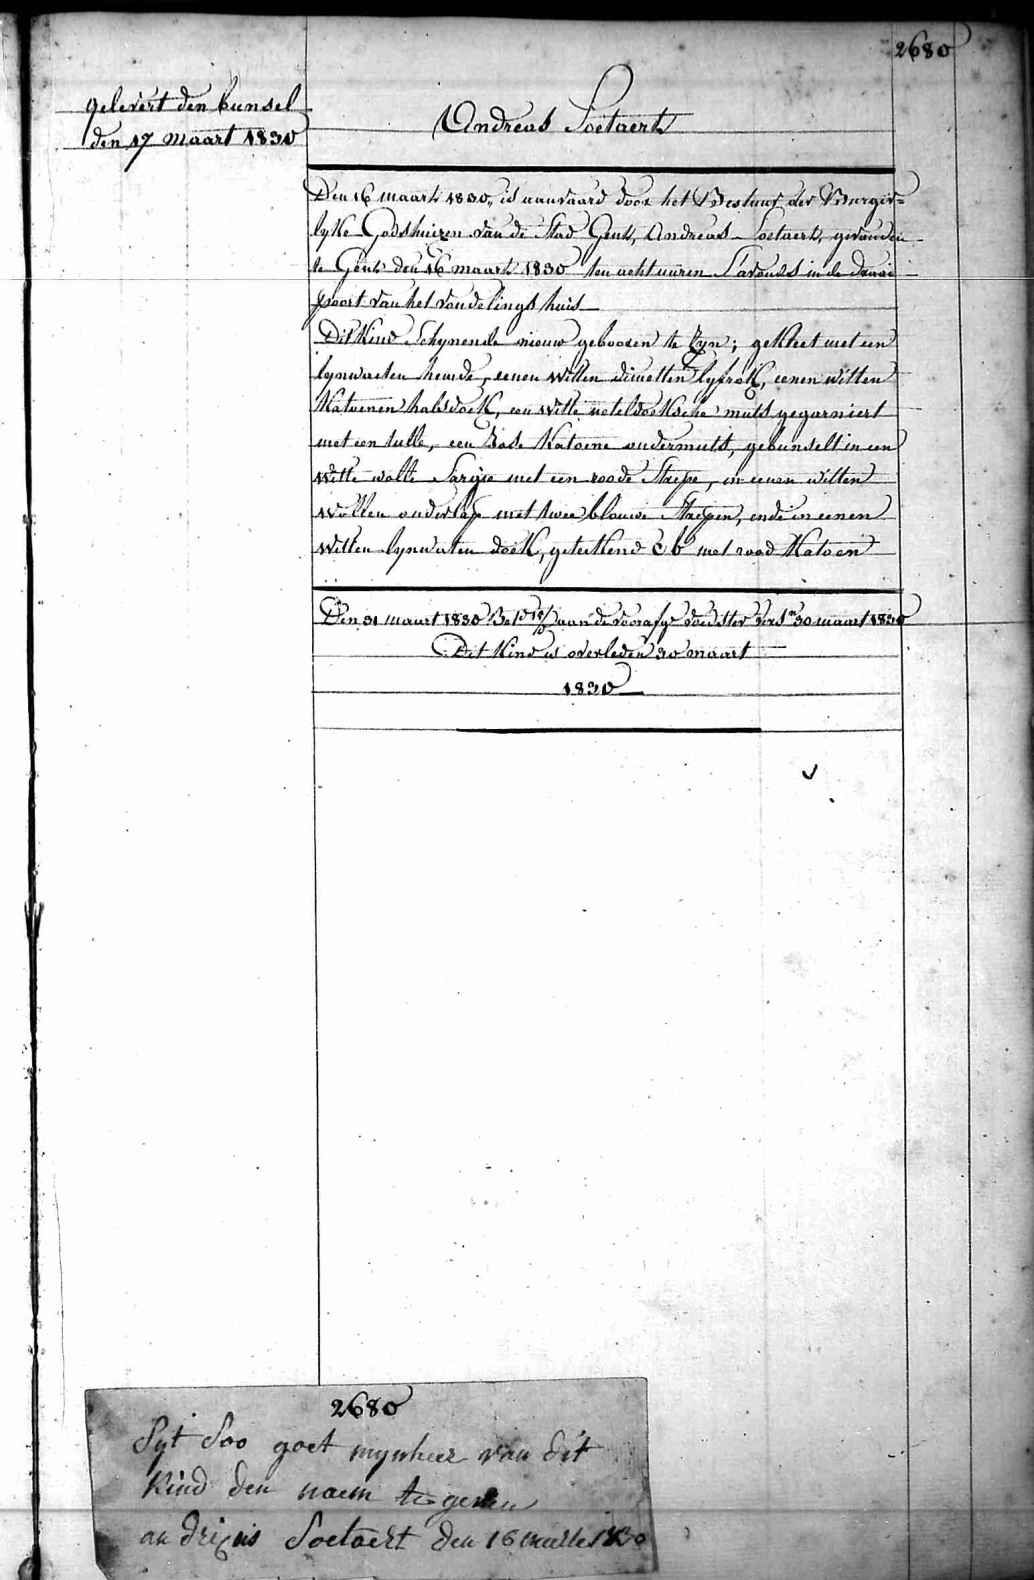 2680
gelevert den bunsel
den 17 maart 1830
Andreas Soetaert
Den 16 maart 1830, is aanvaard door het Bestuur der Burger=
lyke Godshuizen van de Stad Gent, Andreas Soetaert, gevonden
te Gent den 16 maart 1830 ten acht uüren S'avonds in de draai
poort van het vondelings huis
Dit Kind Schynende nieuw geboren te Zyn; gekleet met een
lynwaeten hemde, eenen witten dimetten lyfrok, eenen witten
Katoenen halsdoek, een witte neteldoeksche muts gegarniert
met een tulle, een Rose Katoene ondermuts, gebunselt in een
witte wolle Sargie met een roode Strepe, in eenen witten
wollen onderlap met twee blauwe Strepen, ende in eenen
witten lynwaten doek, geteekend C b met rood Katoen
Den 31 maart 1830 aan de voorafge voedster 30 maart 1830
Dit Kind is overleden 30 maart
1830
2680
Syt Soo goet mynheer van dit
Kind den naem te geven
an dri is Soetaert den 16 1830